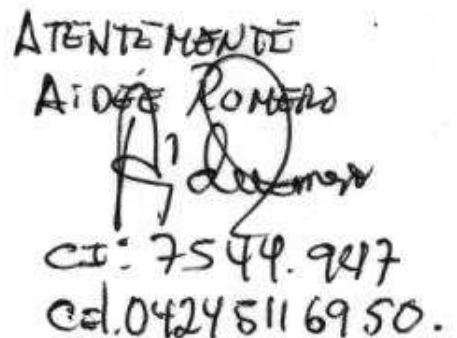 ATENTEMENTE
AIDEÉ ROMERO
CI: 7544.947
Cel. 0424 5116950.